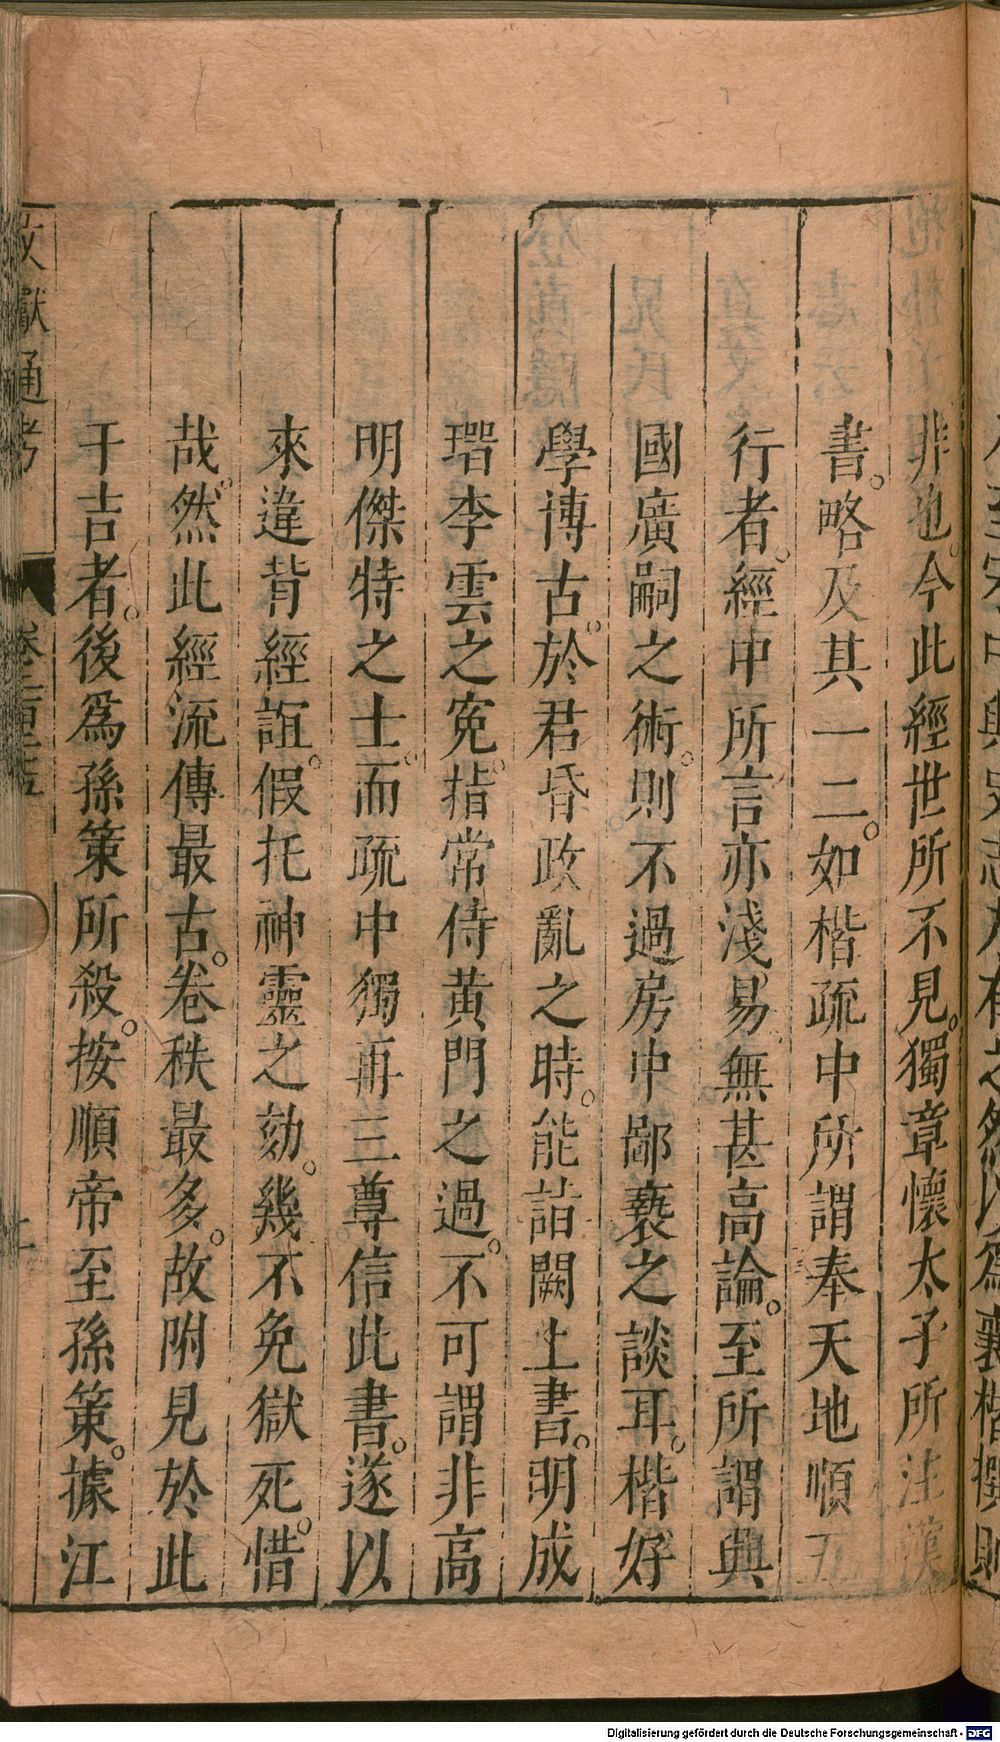 非也。今此經世所不見。獨章懷太子所注漢
書。略及其一二。如楷疏中所謂奉天地順五
行者。經中所言亦淺易無甚高論。至所謂興
國廣嗣之術。則不過房中鄙褻之談耳。楷好
學博古。於君昏政亂之時。能詣闕上書。明成
瑨李雲之寃。指常侍黃門之過。不可謂非高
明傑特之士。而疏中獨再三尊信此書。遂以
來違背經誼。假托神靈之効。幾不免獄死。惜
哉。然此經流傳最古。卷秩最多。故附見於此
于吉者。後爲孫策所殺。按順帝至孫策。據江
文獻通考 卷二百二十五
Digitalisierung gefördert durch die Deutsche Forschungsgemeinschaft - DFG